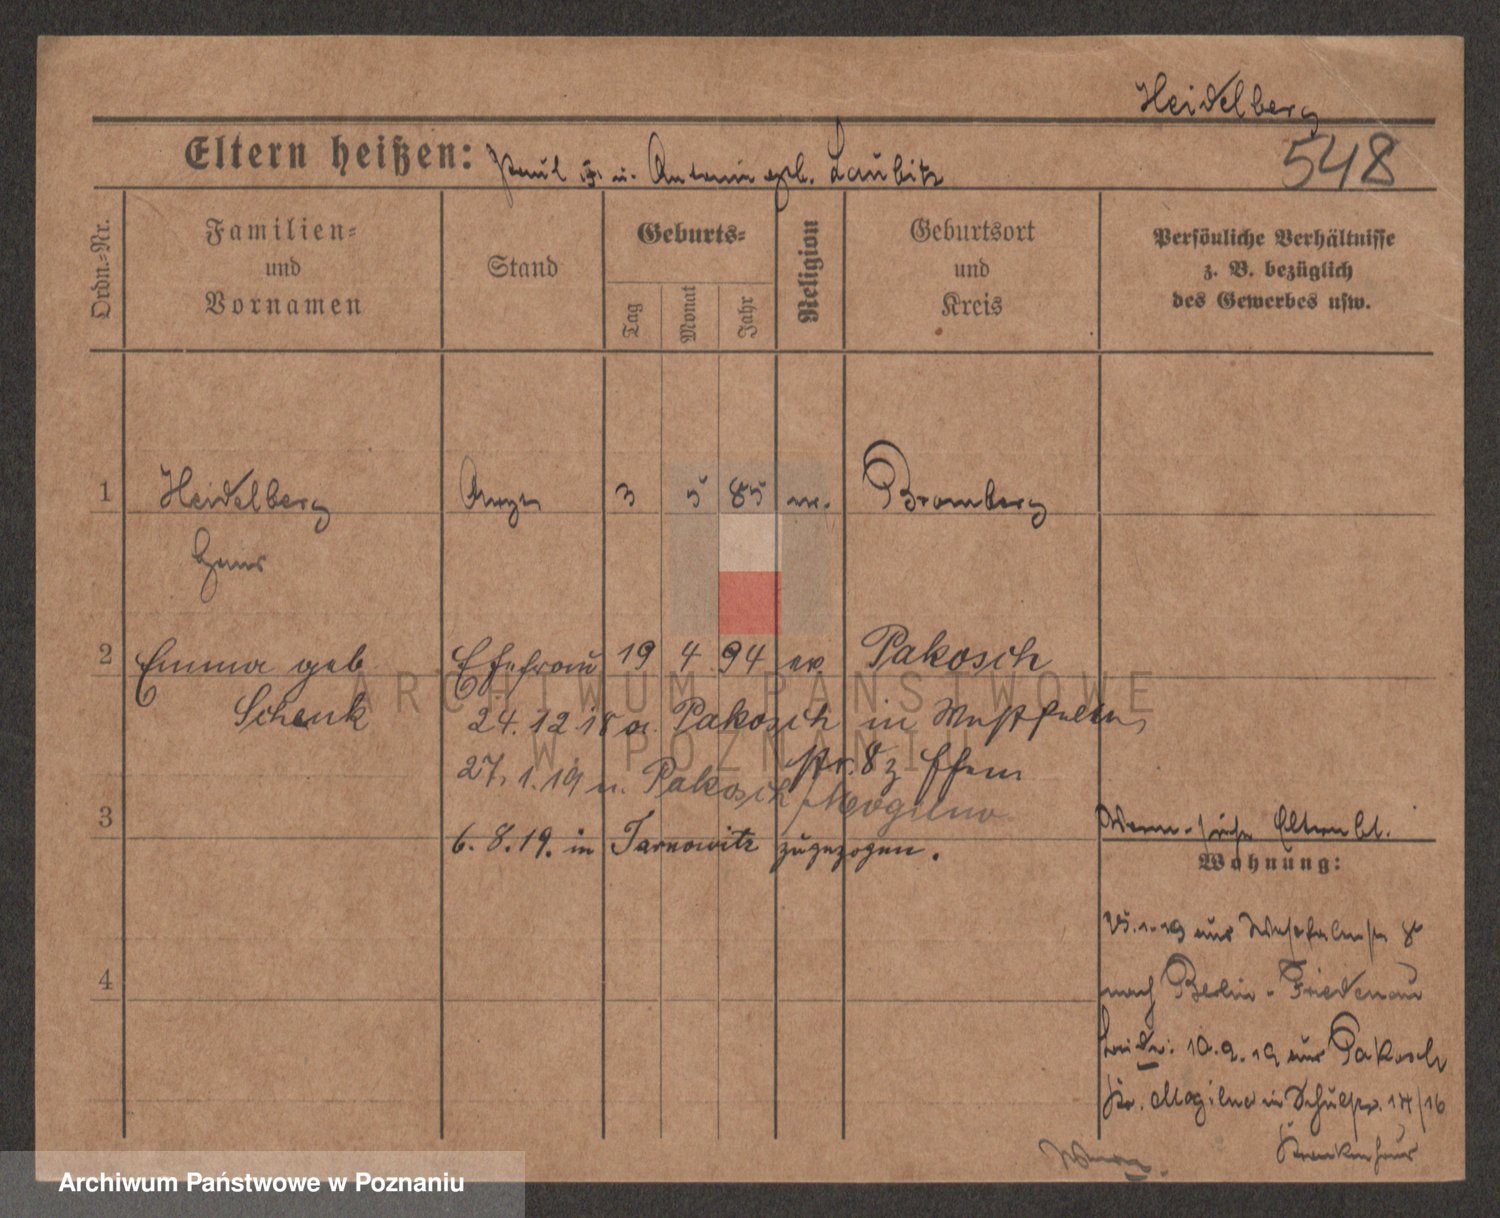 Heidelberg
548
Eltern heißen: Paul u. Antonie geb. Laubitz
Ordn.-Nr.
Familien-
und
Vornamen
Stand
Geburts-
Tag
Monat
Jahr
Religion
Geburtsort
und
Kreis
Persönliche Verhältnisse
z. B. bezüglich
des Gewerbes usw.
1 Heidelberg 3 5 85 Bromberg
Hans
2 Emma geb Ehefrau 19 4 94 ev Pakosch
Schenk
24.12.18 a Pakosch in Westfalen
str. 8 z
27.1.19 n. Pakosch / Mogilno
3
6.8.19. in Tarnowitz zugezogen.
siehe Eltern bl.
Wohnung:
25.1.19 aus 8
nach Berlin - Friedenau
4
10.9.19 aus Pakosch
Kr. Mogilno in Schulstr. 14/16
Krankenhaus
ARCHIWUM PAŃSTWOWE
W POZNANIU
Archiwum Państwowe w Poznaniu